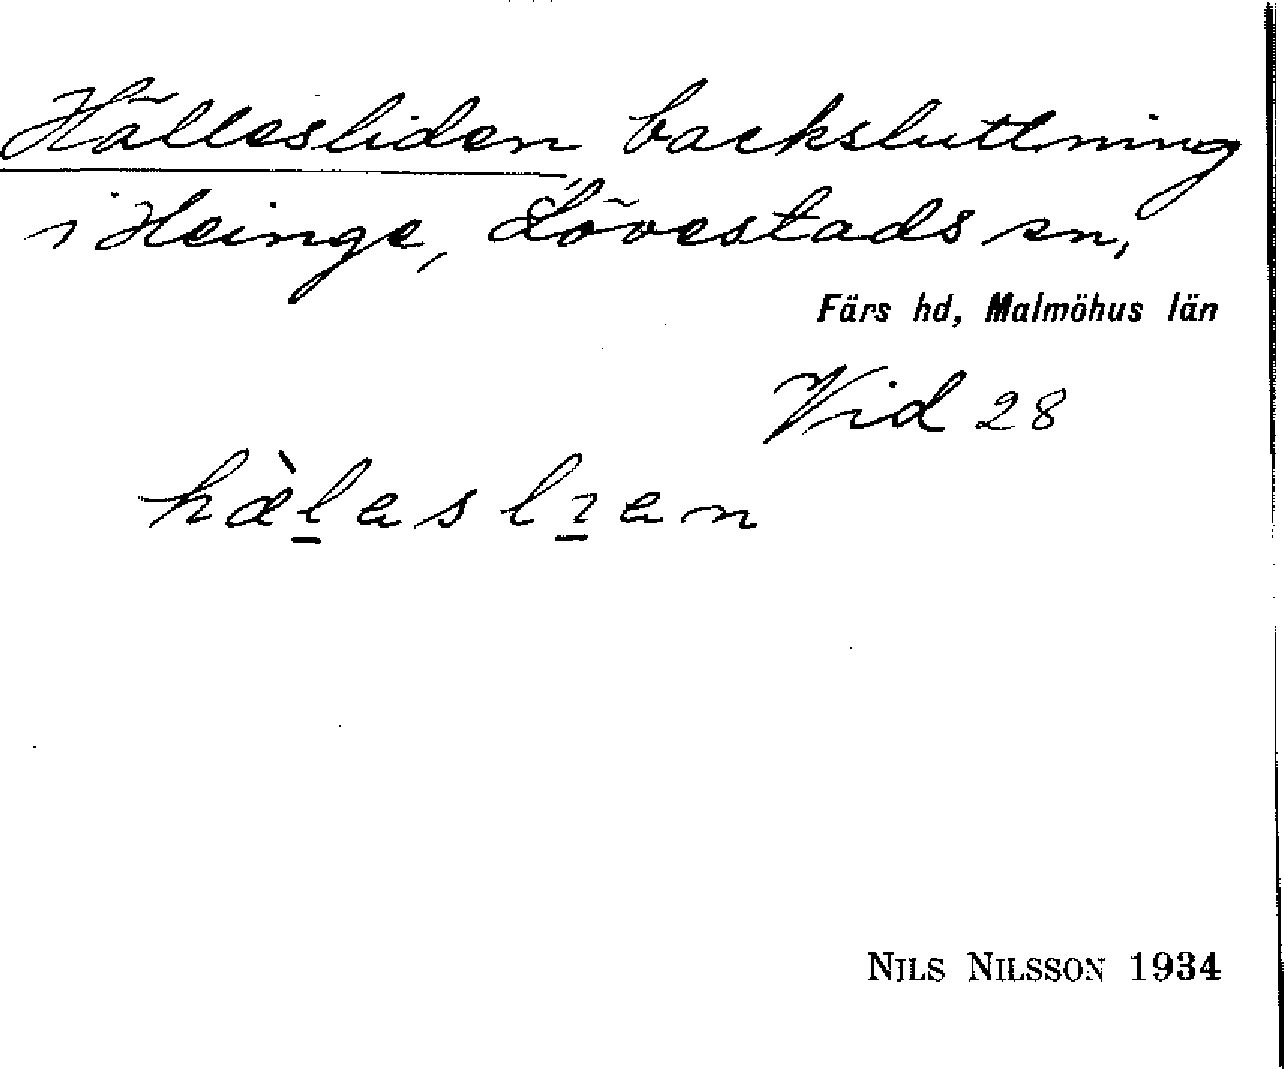 Hällesliden, backsluttning
i Heinge, Lövestads sn,
Färs hd, Malmöhus län
Vid 28
hæ̀l̲asl̲ɿan
NILS NILSSON 1934